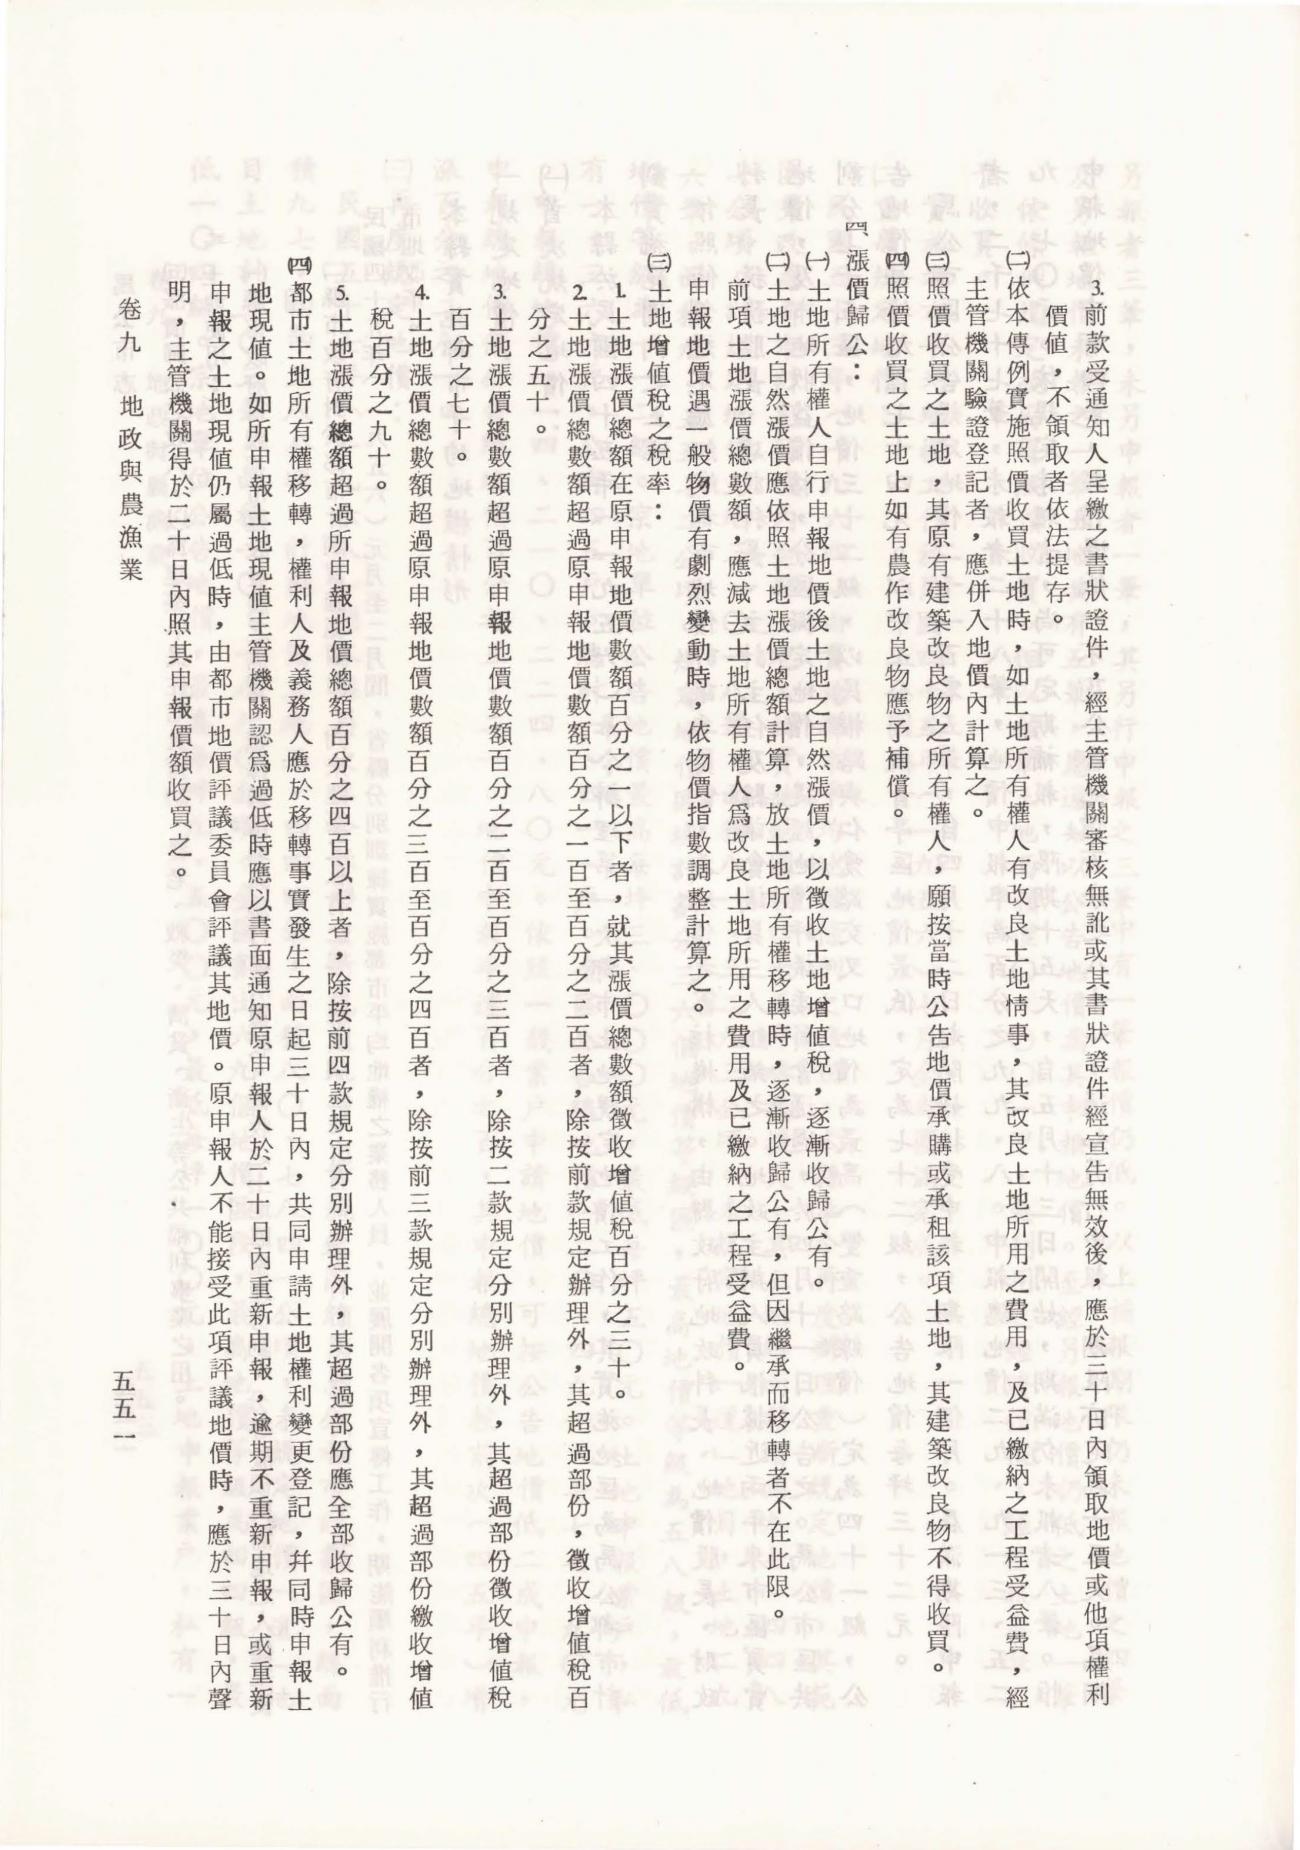 3.前款受通知人呈繳之書狀證件，經主管機關審核無訛或其書狀證件經宣告無效後，應於三十日內領取地價或他項權利
價值，不領取者依法提存。
㈡依本傳例實施照價收買土地時，如土地所有權人有改良土地情事，其改良土地所用之費用，及已繳納之工程受益費，經
主管機關驗證登記者，應併入地價內計算之。
㈢照價收買之土地，其原有建築改良物之所有權人，願按當時公告地價承購或承租該項土地，其建築改良物不得收買。
㈣照價收買之土地上如有農作改良物應予補償。
四、漲價歸公：
㈠土地所有權人自行申報地價後土地之自然漲價，以徵收土地增值稅，逐漸收歸公有。
㈡土地之自然漲價應依照土地漲價總額計算，放土地所有權移轉時，逐漸收歸公有，但因繼承而移轉者不在此限。
前項土地漲價總數額，應減去土地所有權人爲改良土地所用之費用及已繳納之工程受益費。
申報地價遇一般物價有劇烈變動時，依物價指數調整計算之。
㈢土地增值稅之稅率：
1.土地漲價總額在原申報地價數額百分之一以下者，就其漲價總數額徵收增值稅百分之三十。
2.土地漲價總數額超過原申報地價數額百分之一百至百分之二百者，除按前款規定辦理外，其超過部份，徵收增值稅百
分之五十。
3.土地漲價總數額超過原申報地價數額百分之二百至百分之三百者，除按二款規定分別辦理外，其超過部份徵收增值稅
百分之七十。
4.土地漲價總數額超過原申報地價數額百分之三百至百分之四百者，除按前三款規定分別辦理外，其超過部份繳收增值
稅百分之九十。
5.土地漲價總額超過所申報地價總額百分之四百以上者，除按前四款規定分別辦理外，其超過部份應全部收歸公有。
㈣都市土地所有權移轉，權利人及義務人應於移轉事實發生之日起三十日內，共同申請土地權利變更登記，幷同時申報土
地現值。如所申報土地現值主管機關認爲過低時應以書面通知原申報人於二十日內重新申報，逾期不重新申報，或重新
申報之土地現值仍屬過低時，由都市地價評議委員會評議其地價。原申報人不能接受此項評議地價時，應於三十日內聲
明，主管機關得於二十日內照其申報價額收買之。
卷九　地政與農漁業
五五一